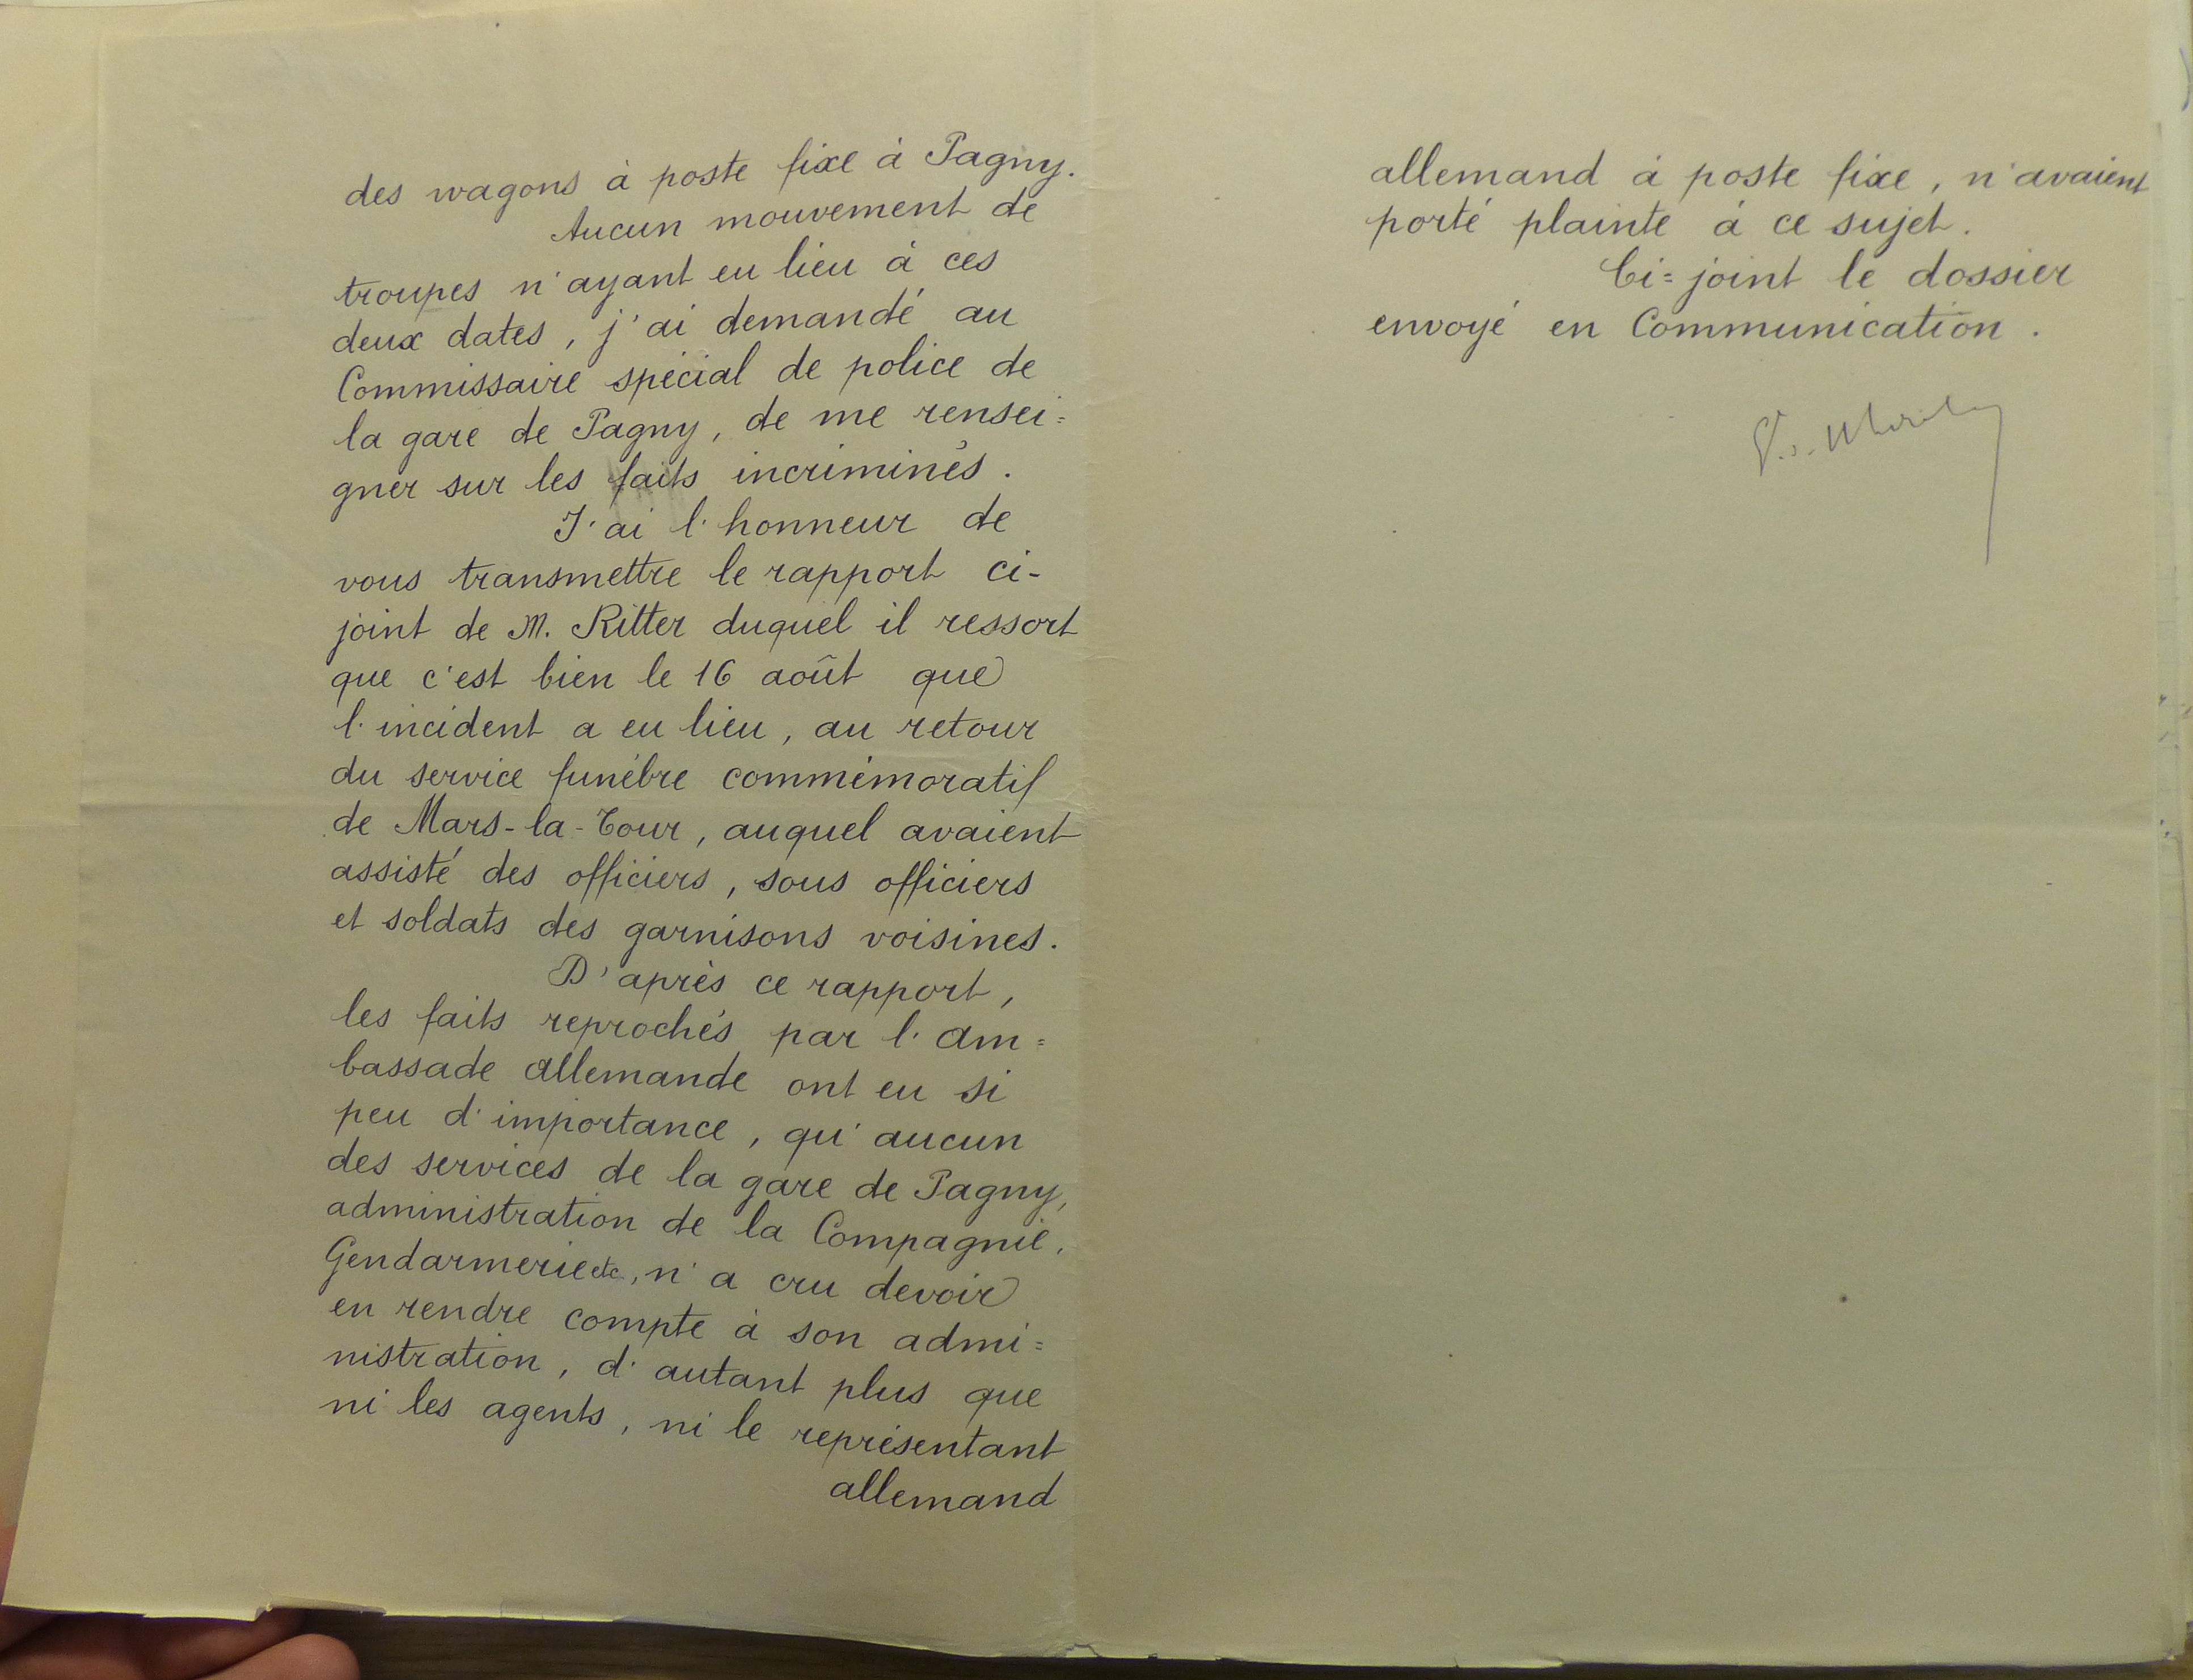 des wagons à poste fixe à Pagny.
Aucun mouvement de
troupes n'ayant eu lieu à ces
deux dates, j'ai demandé au
Commissaire spécial de police de
la gare de Pagny, de me rensei=
gner sur les faits incriminés.
J'ai l'honneur de
vous transmettre le rapport ci-
joint de M. Ritter duquel il ressort
que c'est bien le 16 août que
l'incident a eu lieu, au retour
du service funèbre commémoratif
de Mars-la-Tour, auquel avaient
assisté des officiers, sous officiers
et soldats des garnisons voisines.
D'après ce rapport,
les faits reprochés par l'am=
bassade allemande ont eu si
peu d'importance, qu'aucun
des services de la gare de Pagny,
administration de la Compagnie,
Gendarmerie etc, n'a cru devoir
en rendre compte à son admi=
nistration, d'autant plus que
ni les agents, ni le représentant
allemand
allemand à poste fixe, n'avaient
porté plainte à ce sujet.
Ci=joint le dossier
envoyé en Communication.